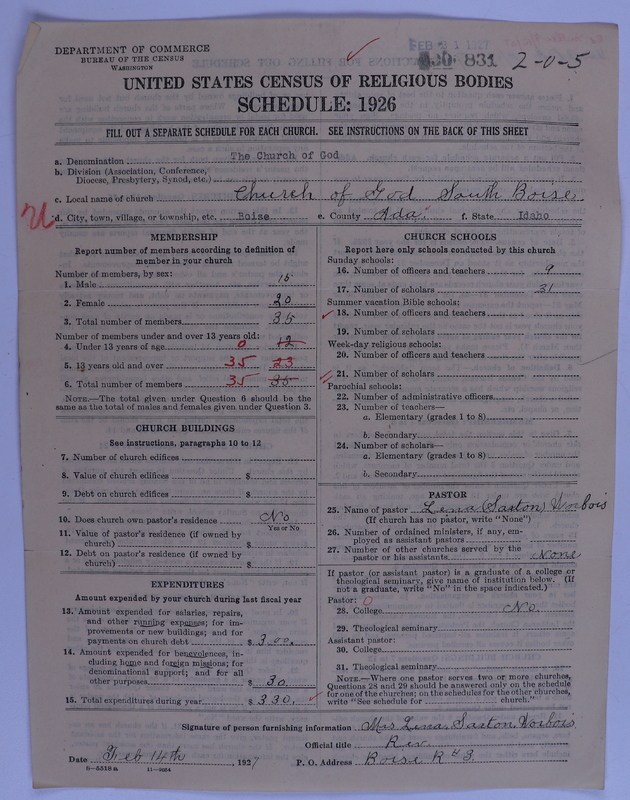 DEPARTMENT OF COMMERCE
BUREAU OF THE CENSUS
WASHINGTON
FEB 21 1927
831 2-0-5
UNITED STATES CENSUS OF RELIGIOUS BODIES
SCHEDULE: 1926
FILL OUT A SEPARATE SCHEDULE FOR EACH CHURCH. SEE INSTRUCTIONS ON THE BACK OF THIS SHEET
a. Denomination The Church of God
b. Division (Association, Conference,
Diocese, Presbytery, Synod, etc.)
c. Local name of church Church of God South Boise
d. City, town, village, or township, etc. Boise e. County Ada f. State Idaho
MEMBERSHIP
Report number of members according to definition of
member in your church
Number of members, by sex:
1. Male 15
2. Female 20
3. Total number of members 35
Number of members under and over 13 years old:
4. Under 13 years of age 0 12
5. 13 years old and over 35 23
6. Total number of members 35 35
NOTE.—The total given under Question 6 should be the
same as the total of males and females given under Question 3.
CHURCH BUILDINGS
See instructions, paragraphs 10 to 12
7. Number of church edifices
8. Value of church edifices $
9. Debt on church edifices $
10. Does church own pastor's residence No
Yes or No
11. Value of pastor's residence (if owned by
church) $
12. Debt on pastor's residence (if owned by
church) $
EXPENDITURES
Amount expended by your church during last fiscal year
13. Amount expended for salaries, repairs,
and other running expenses; for im-
provements or new buildings; and for
payments on church debt $ 300.
14. Amount expended for benevolences, in-
cluding home and foreign missions; for
denominational support; and for all
other purposes $ 30.
15. Total expenditures during year $ 330.
CHURCH SCHOOLS
Report here only schools conducted by this church
Sunday schools:
16. Number of officers and teachers 9
17. Number of scholars 31
Summer vacation Bible schools:
18. Number of officers and teachers
19. Number of scholars
Week-day religious schools:
20. Number of officers and teachers
21. Number of scholars
Parochial schools:
22. Number of administrative officers
23. Number of teachers—
a. Elementary (grades 1 to 8)
b. Secondary
24. Number of scholars—
a. Elementary (grades 1 to 8)
b. Secondary
PASTOR
25. Name of pastor Lena (Saxton) Worbois
(If church has no pastor, write "None")
26. Number of ordained ministers, if any, em-
ployed as assistant pastors
27. Number of other churches served by the
pastor or his assistants None
If pastor (or assistant pastor) is a graduate of a college or
theological seminary, give name of institution below. (If
not a graduate, write "No" in the space indicated.)
Pastor: 0
28. College No.
29. Theological seminary
Assistant pastor:
30. College
31. Theological seminary
NOTE.—Where one pastor serves two or more churches,
Questions 28 and 29 should be answered only on the schedule
for one of the churches; on the schedules for the other churches,
write "See schedule for church."
Signature of person furnishing information Mrs Lena Saxton Worbois
Official title Rev.
Date Feb 14th, 1927 P. O. Address Boise R#3.
8-5518a 11-9054